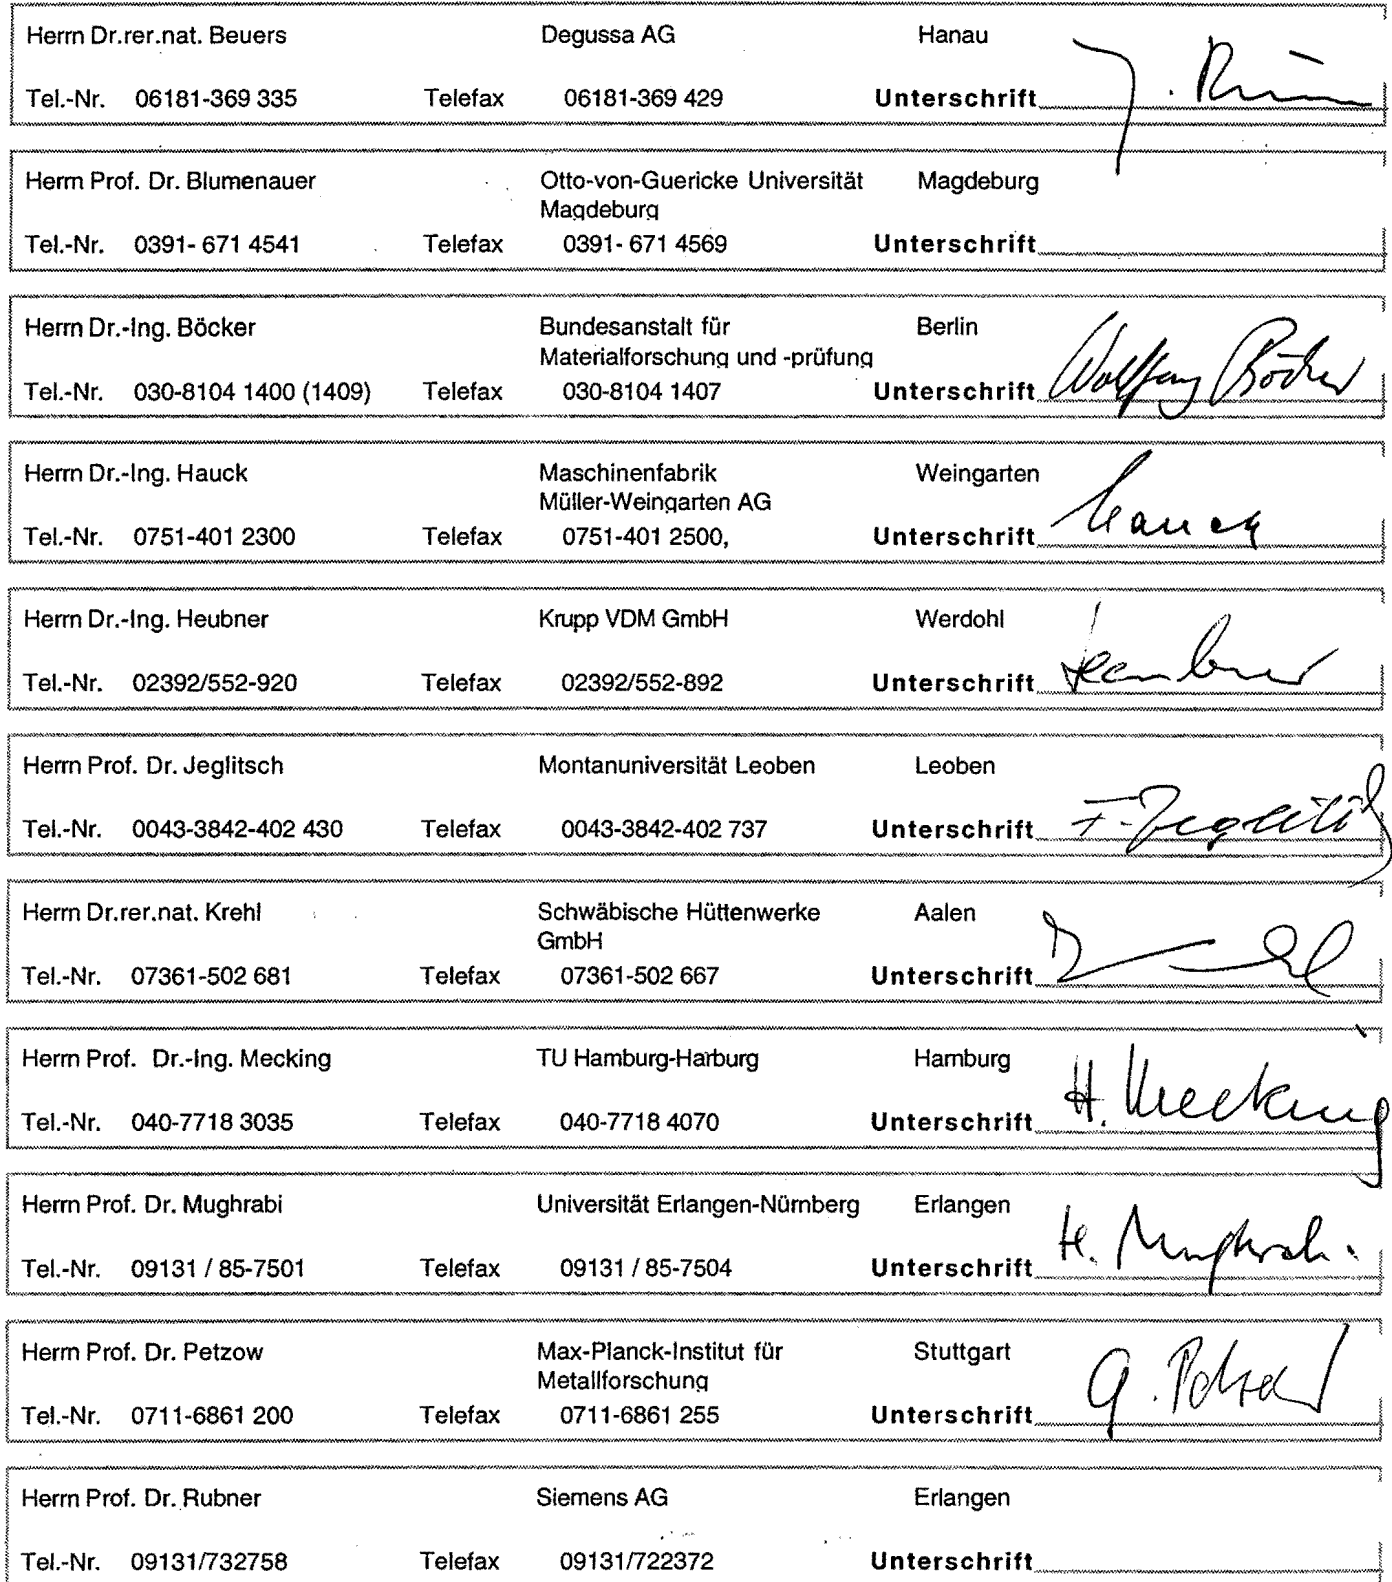 Herrn Dr.rer.nat. Beuers Degussa AG Hanau
Tel.-Nr. 06181-369 335 Telefax 06181-369 429 Unterschrift
Herrn Prof. Dr. Blumenauer Otto-von-Guericke Universität Magdeburg
Magdeburg
Tel.-Nr. 0391- 671 4541 Telefax 0391- 671 4569 Unterschrift
Herrn Dr.-Ing. Böcker Bundesanstalt für Berlin
Materialforschung und -prüfung
Tel.-Nr. 030-8104 1400 (1409) Telefax 030-8104 1407 Unterschrift Wolfgang Böcker
Herrn Dr.-Ing. Hauck Maschinenfabrik Weingarten
Müller-Weingarten AG
Tel.-Nr. 0751-401 2300 Telefax 0751-401 2500, Unterschrift Hauck
Herrn Dr.-Ing. Heubner Krupp VDM GmbH Werdohl
Tel.-Nr. 02392/552-920 Telefax 02392/552-892 Unterschrift Heubner
Herrn Prof. Dr. Jeglitsch Montanuniversität Leoben Leoben
Tel.-Nr. 0043-3842-402 430 Telefax 0043-3842-402 737 Unterschrift F. Jeglitsch
Herrn Dr.rer.nat. Krehl Schwäbische Hüttenwerke Aalen
GmbH
Tel.-Nr. 07361-502 681 Telefax 07361-502 667 Unterschrift
Herrn Prof. Dr.-Ing. Mecking TU Hamburg-Harburg Hamburg
Tel.-Nr. 040-7718 3035 Telefax 040-7718 4070 Unterschrift H. Mecking
Herrn Prof. Dr. Mughrabi Universität Erlangen-Nürnberg Erlangen
Tel.-Nr. 09131 / 85-7501 Telefax 09131 / 85-7504 Unterschrift H. Mughrabi
Herrn Prof. Dr. Petzow Max-Planck-Institut für Stuttgart
Metallforschung
Tel.-Nr. 0711-6861 200 Telefax 0711-6861 255 Unterschrift G. Petzow
Herrn Prof. Dr. Rubner Siemens AG Erlangen
Tel.-Nr. 09131/732758 Telefax 09131/722372 Unterschrift